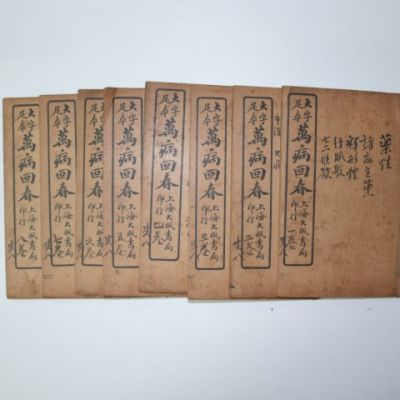 藥性
諸病主藥
釋形體
大字足本
萬病回春
上海大成書局印行
一卷
大字足本
萬病回春
上海大成書局印行
二卷
共八
大字足本
萬病回春
上海大成書局印行
三卷
共八
大字足本
萬病回春
上海大成書局印行
四卷
共八
大字足本
萬病回春
上海大成書局印行
五卷
共八
大字足本
萬病回春
上海大成書局印行
六卷
共八
大字足本
萬病回春
上海大成書局印行
七卷
共八
大字足本
萬病回春
上海大成書局印行
八卷
共八